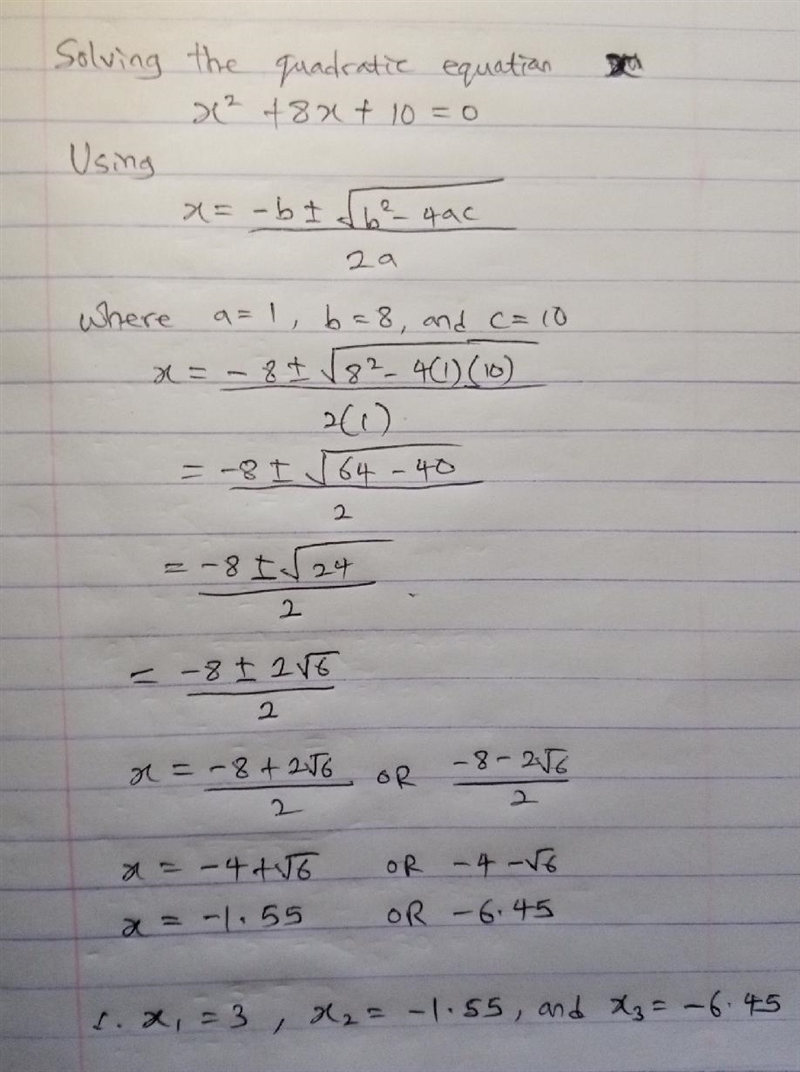 Solving the quadratic equation
x² + 8x + 10 = 0
Using
x = -b ± √b² - 4ac
2a
Where a = 1, b = 8, and c = 10
x = -8 ± √8² - 4(1)(10)
2(1)
= -8 ± √64 - 40
2
= -8 ± √24
2
= -8 ± 2√6
2
x = -8 + 2√6 OR -8 - 2√6
2 2
x = -4 + √6 OR -4 - √6
x = -1.55 OR -6.45
∴ x₁ = 3, x₂ = -1.55, and x₃ = -6.45